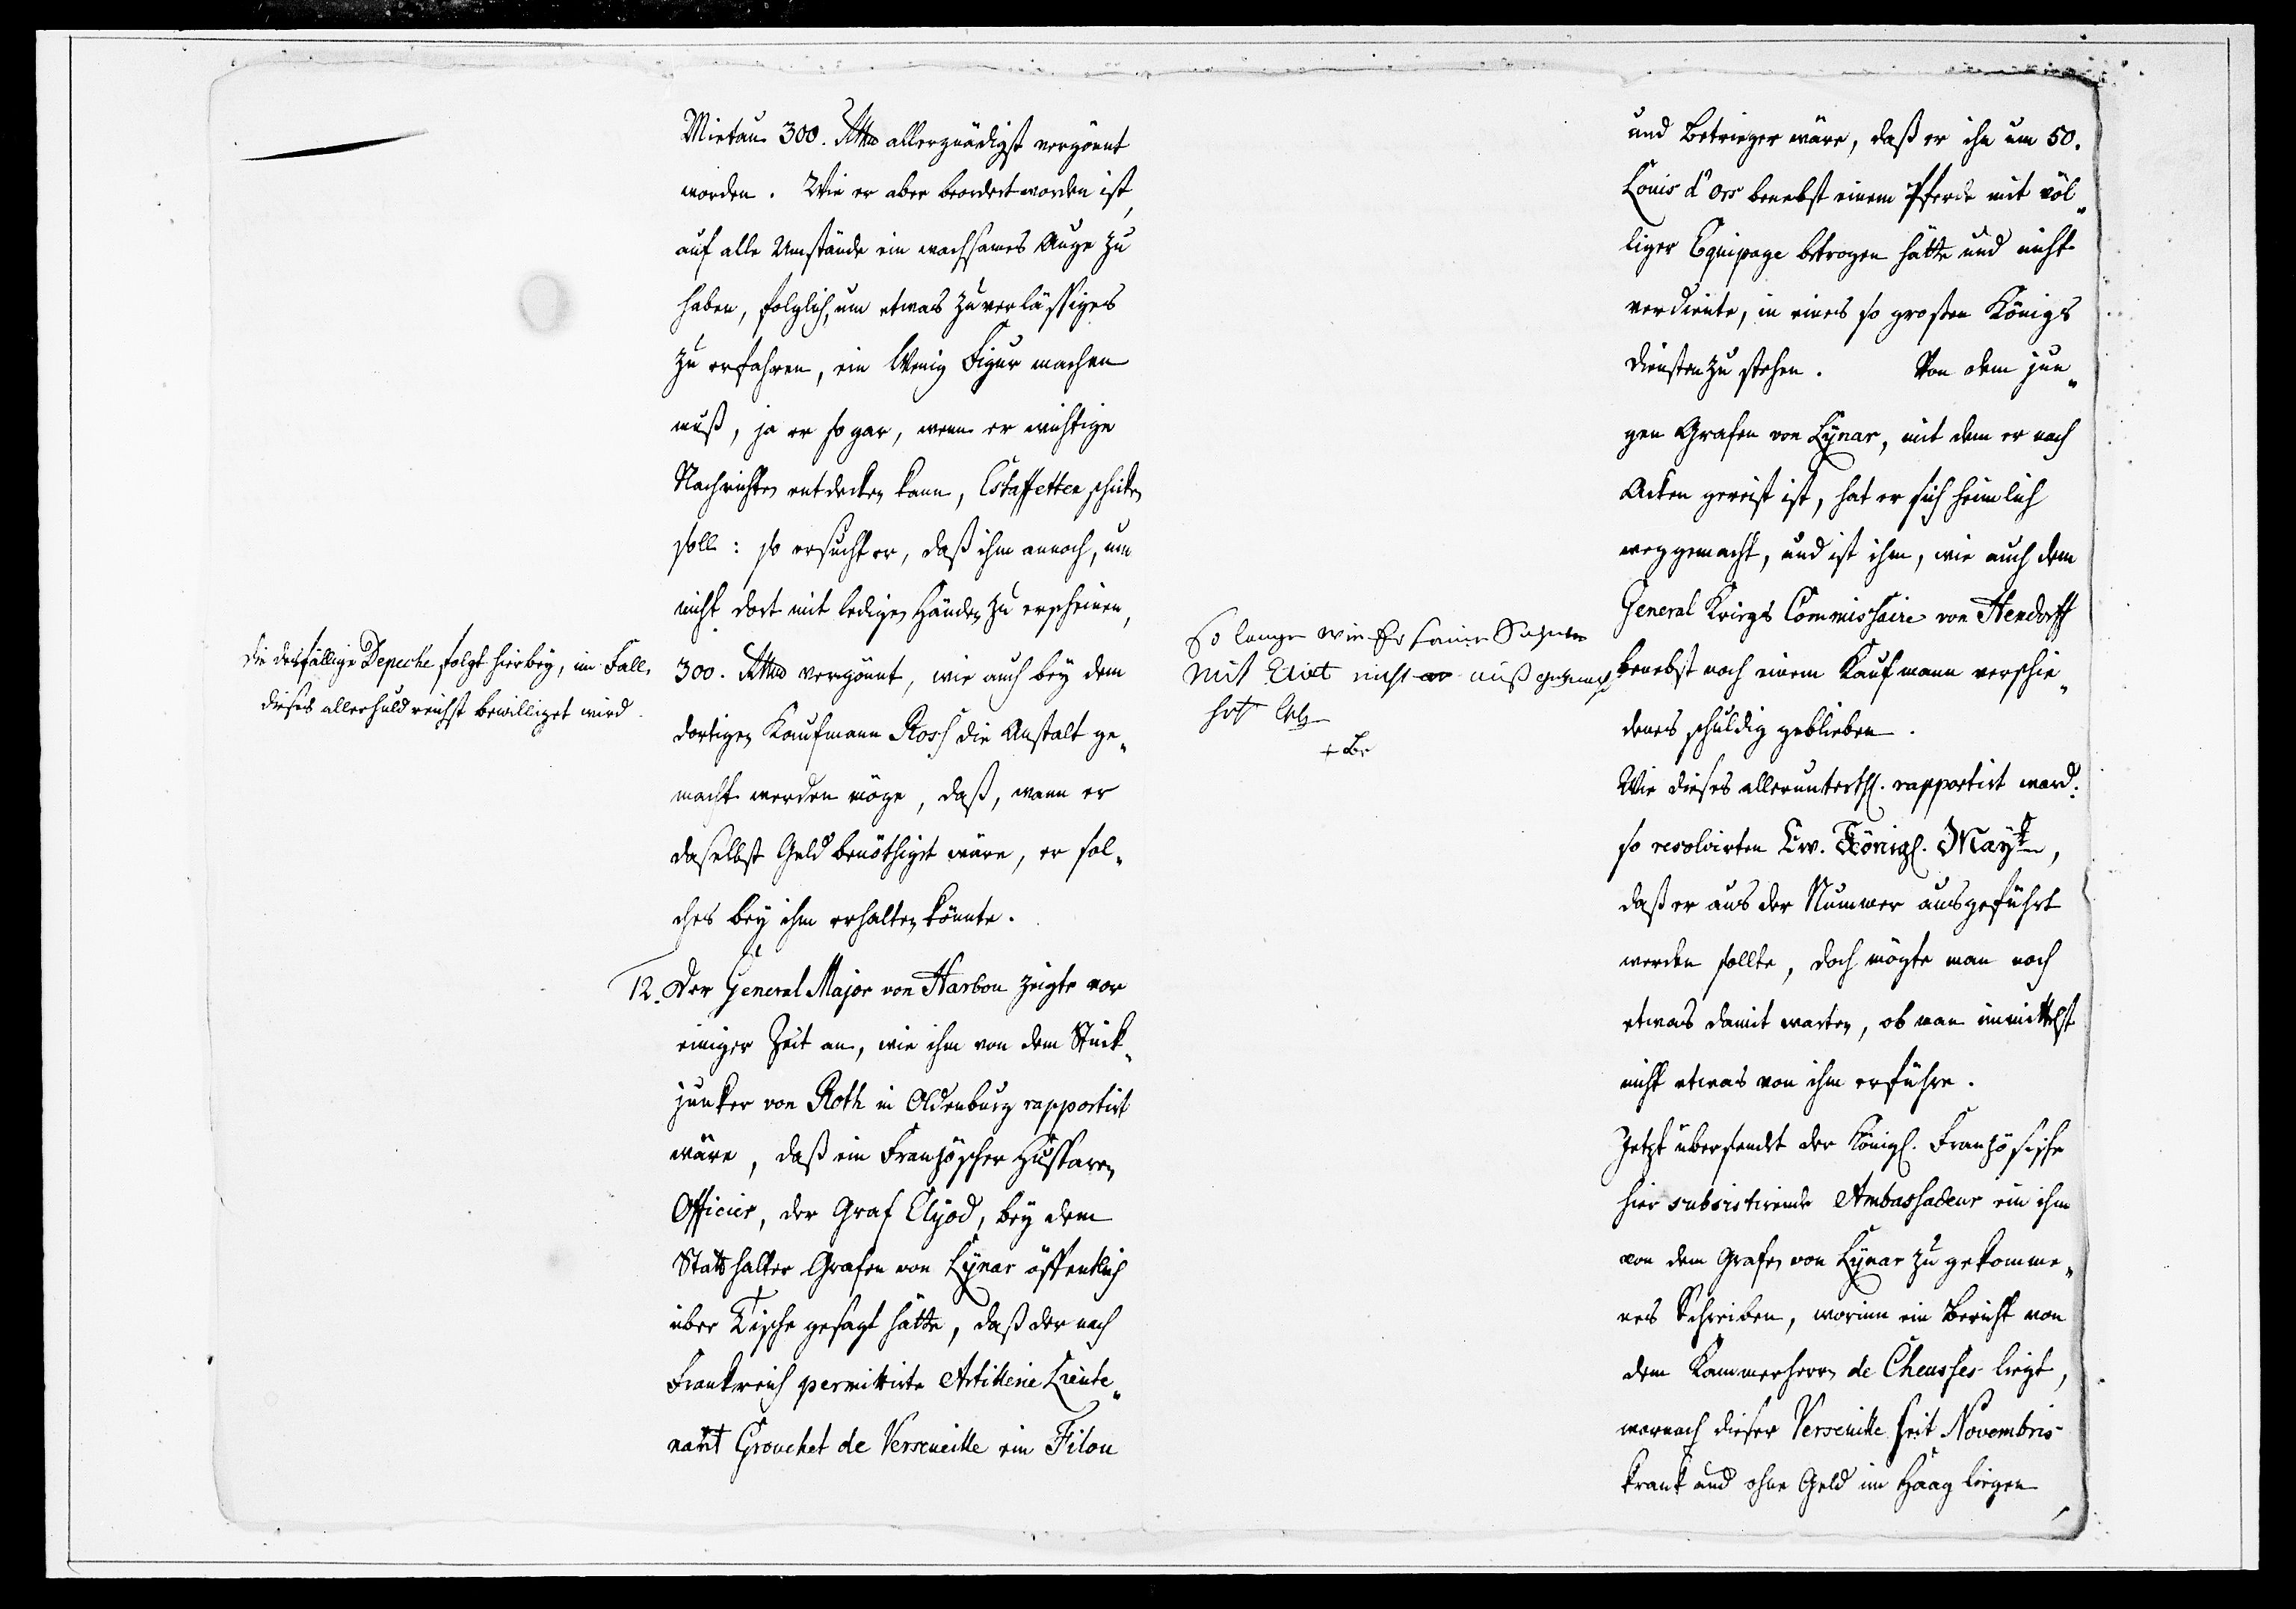 Mietau 300. Rthlr allergnädigst vergönnt
worden. Wie er aber beordert worden ist,
auf alle Umstände ein wachsames Auge zu
haben, folglich, um etwas zuverlässiges
zu erfahren, ein Wenig Figur machen
muß, ja er so gar, wenn er wichtige
Nachrichten entdecken kann, Estaffetten schicken
soll: so ersucht er, daß ihm annoch, um
nicht dort mit ledigen Händen zu erscheinen,
300. Rthlr vergönnt, wie auch bey dem
dortigen Kaufmann Ross die Anstalt ge„
macht werden möge, daß, wann er
daselbst Geld benöthiget wäre, er sol„
ches bey ihm erhalten könnte.
Die desfällige Depeche folgt hierbey, im Fall
dieses allerhuldreichst bewilliget wird.
12. Der General Major von Harbou zeigte vor
einiger Zeit an, wie ihm von dem Stück„
junker von Roth in Oldenburg rapportirt
wäre, daß ein Französcher Hussaren
Officier, der Graf Elyod, bey dem
Statthalter Grafen von Lynar öffentlich
über Tische gesagt hätte, daß der nach
Frankreich permittirte Artillerie Lieute„
nant Grouchet de Verseneille ein Filou
und Betrieger wäre, daß er ihn um 50.
Louis d'ors benebst einem Pferde mit völ„
liger Equipage betrogen hätte und nicht
verdiente, in eines so großen Königs
Diensten zu stehen. Von dem jun„
gen Grafen von Lynar, mit dem er nach
Acken gereist ist, hat er sich heimlich
weggemacht, und ist ihm, wie auch dem
General Kriegs Commissaire von Hendorff
benebst noch einem Kaufmann verschie„
denes schuldig geblieben.
So lange wie Er seine
mit nicht
Wie dieses allerunterthl. rapportirt ward:
so resolvirten Ew. Königl. Mayt.,
daß er aus der Nummer ausgeführt
werden sollte, doch mögte man noch
etwas damit warten, ob man immittelst
nicht etwas von ihm erführe.
Jetzt übersendet der Königl. Französische
hier subsistirende Ambassadeur ein ihm
von dem Grafen von Lynar zu gekomme„
nes Schreiben, worinn ein Bericht von
dem Kammerherrn de Cheusses liegt,
wornach dieser Verseneille seit Novembris
krank und ohne Geld im Haag liegen